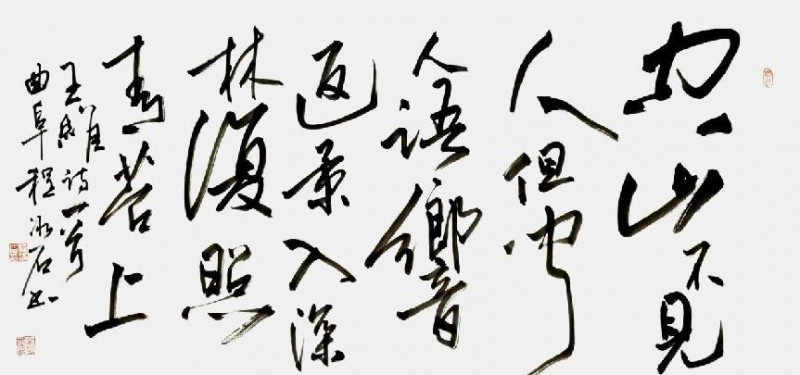 空山不見
人但聞
人語響
返景入深
林復照
青苔上
王維詩一首
曲阜程冰石書